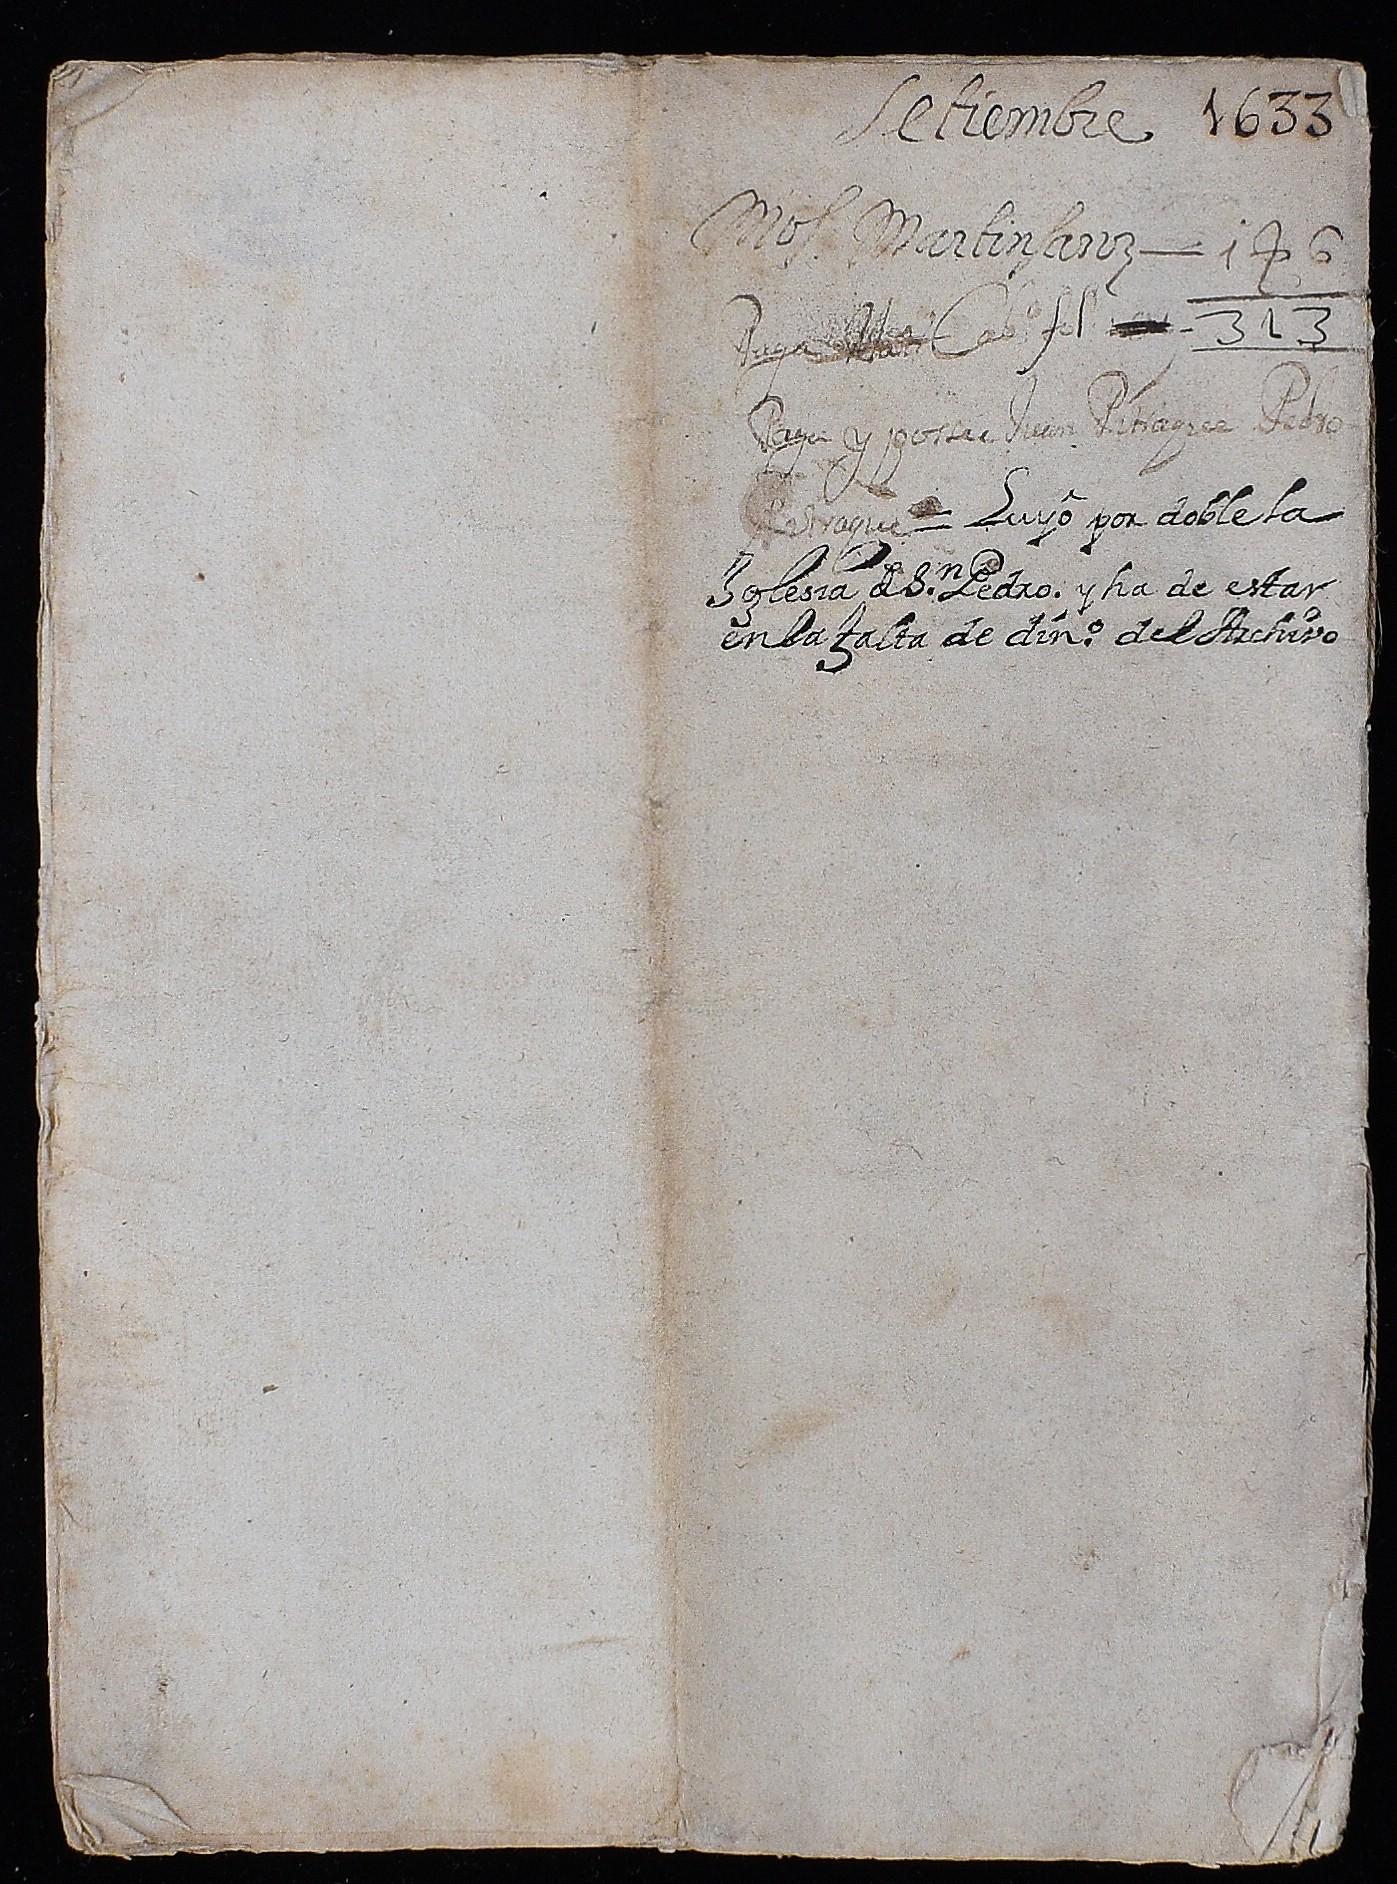 Setiembre 1633
Mos. Martin Saroz — 146
Paga Cab.º fol — 313
Paga y possee Juan Pitragre Pedro
Pitraque = Luyô por doble la
Yglesia d S.n Pedro. y ha de estar
en la falta de din.º del Archivo